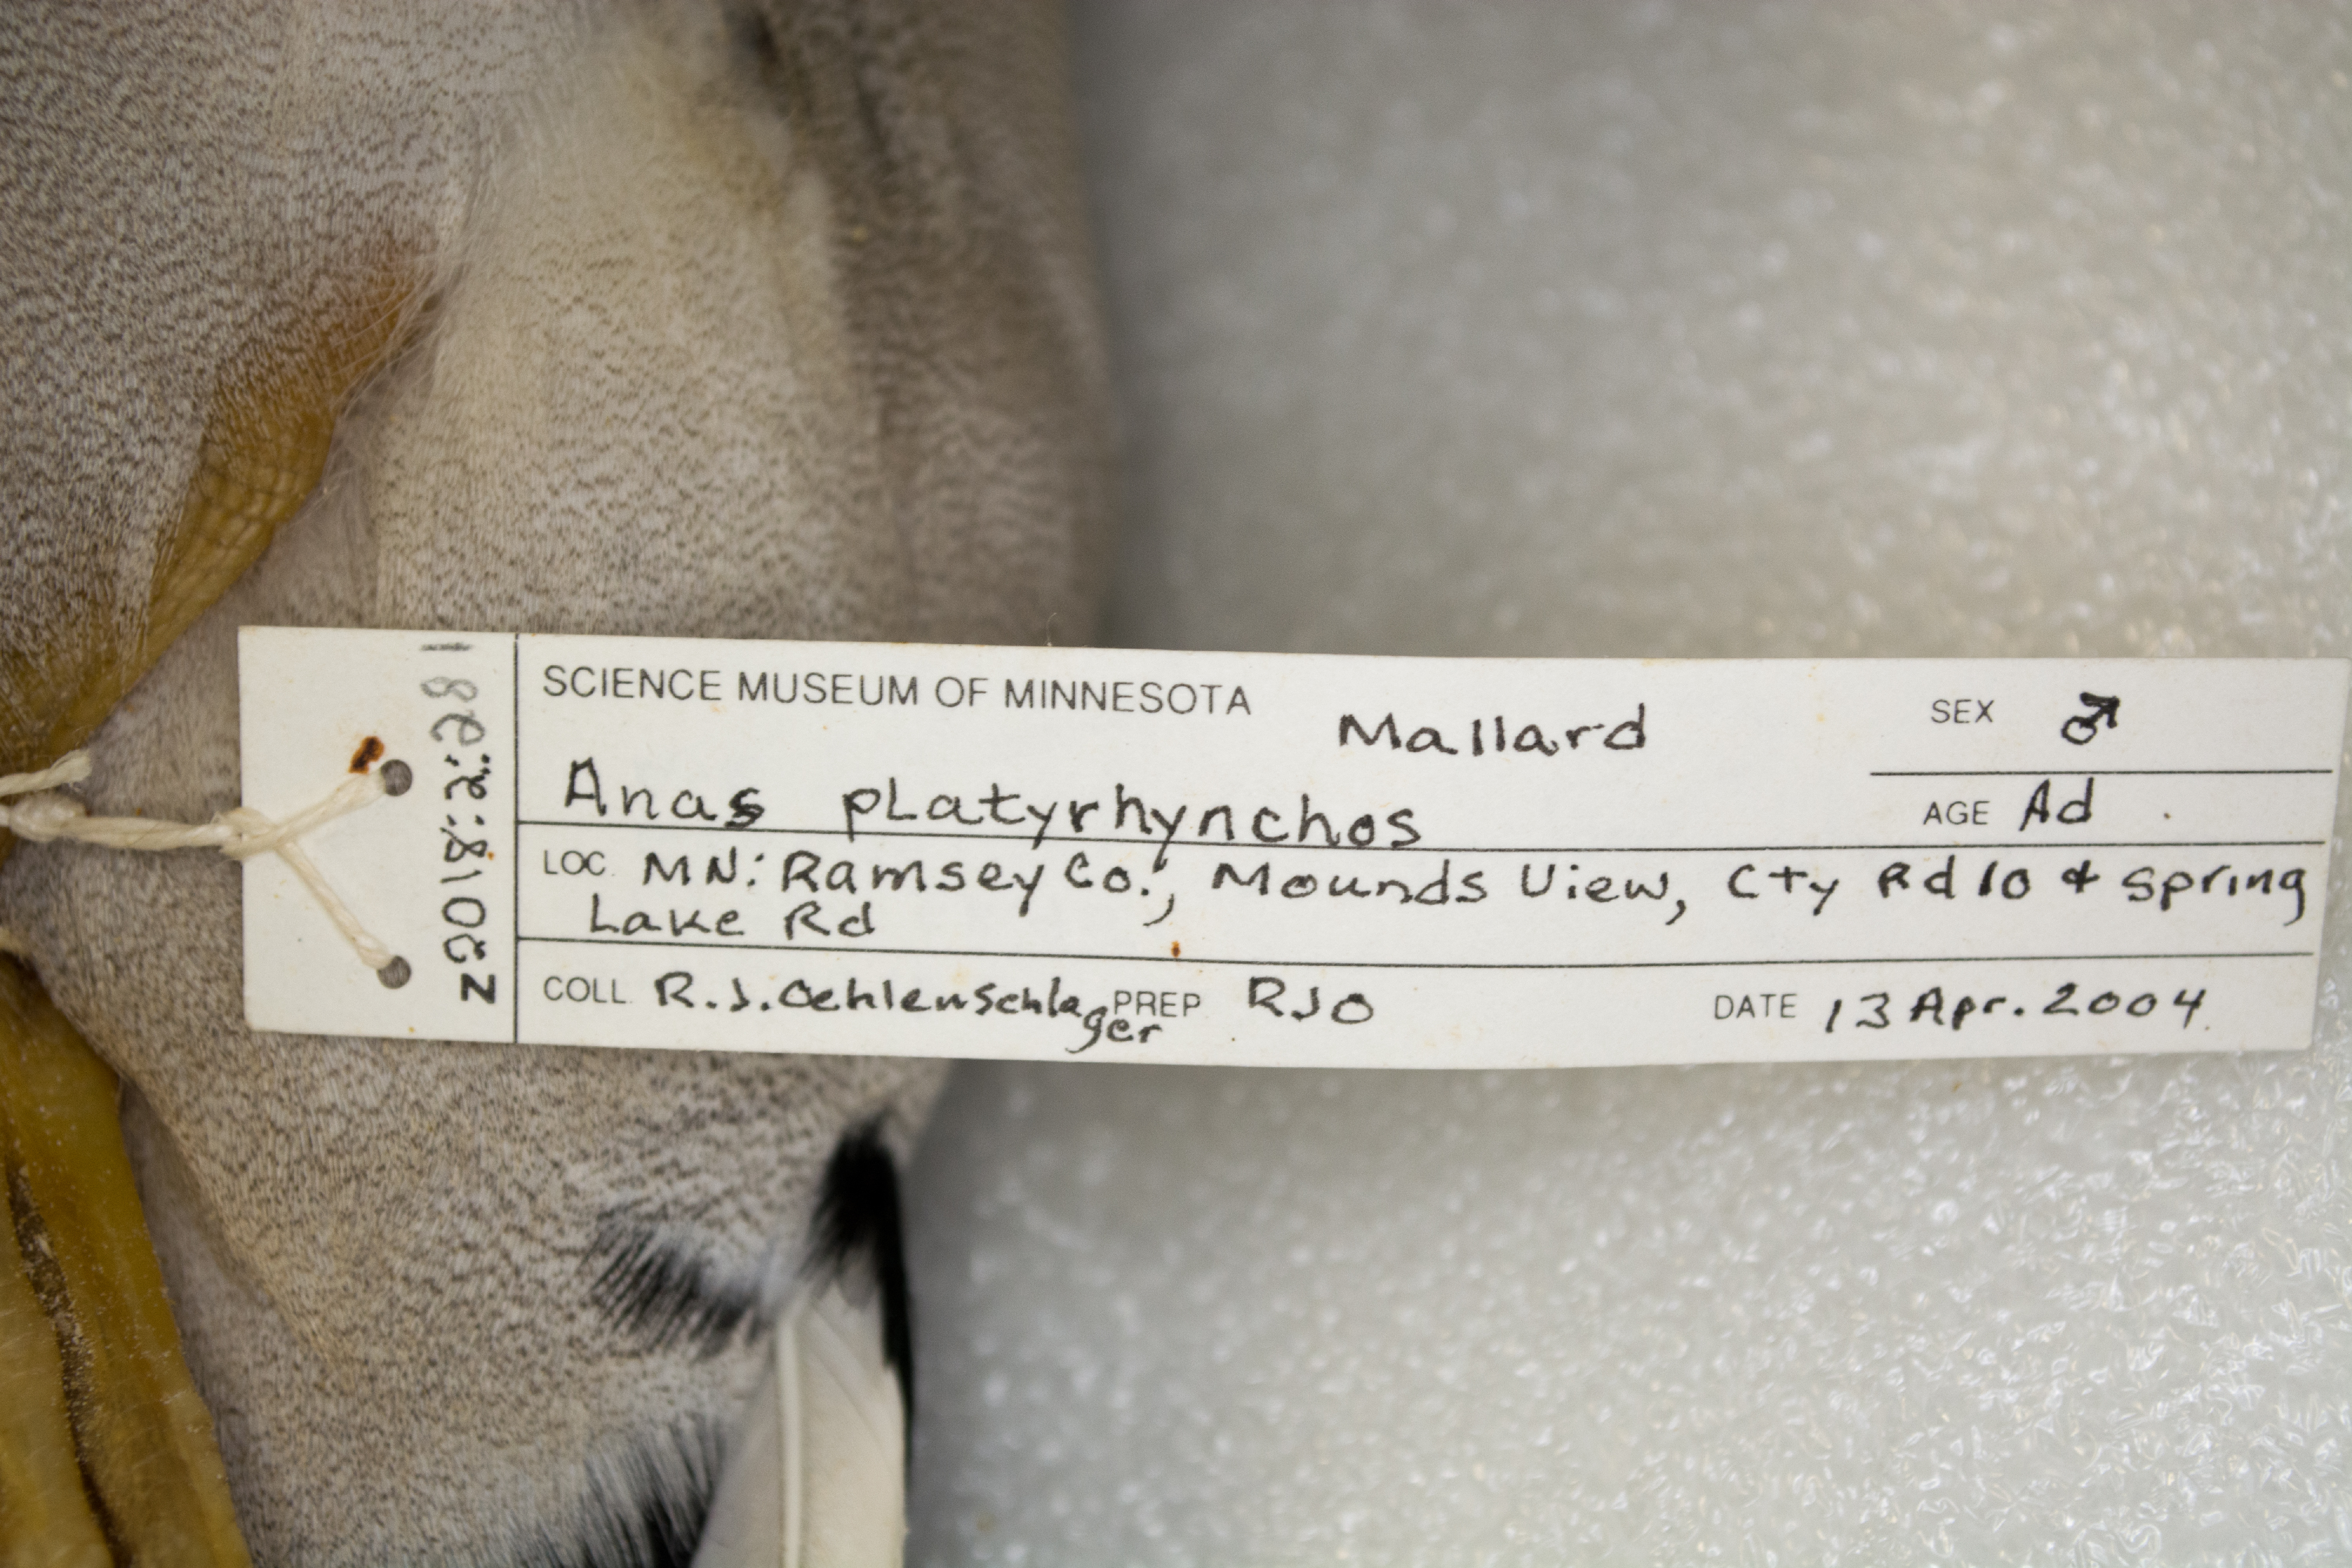 Z2018:2:281
SCIENCE MUSEUM OF MINNESOTA
Mallard
SEX ♂
Anas platyrhynchos
AGE Ad.
LOC. MN: Ramsey Co., Mounds View, Cty Rd 10 & Spring
Lake Rd
COLL. R.J. Oehlenschlager PREP RJO DATE 13 Apr. 2004